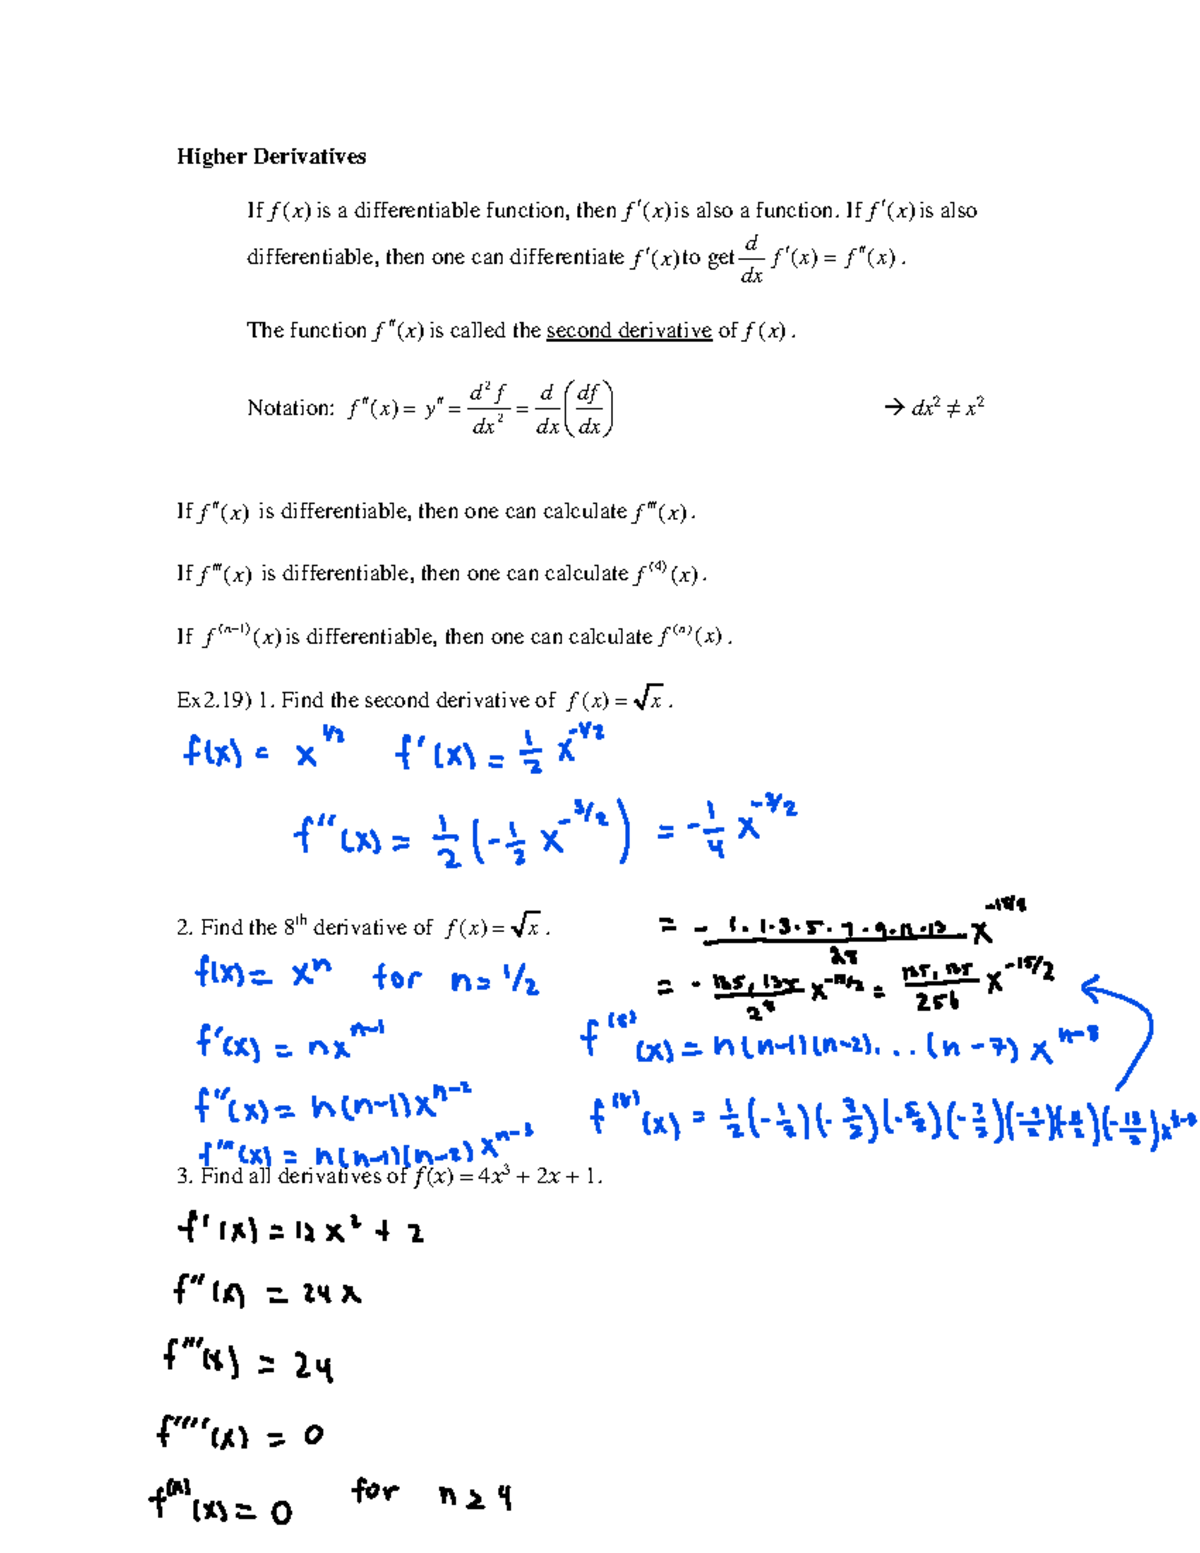 Higher Derivatives
If f(x) is a differentiable function, then f'(x) is also a function. If f'(x) is also
differentiable, then one can differentiate f'(x) to get d/dx f'(x) = f"(x).
The function f"(x) is called the second derivative of f(x).
Notation: f"(x) = y" = d²f/dx² = d/dx (df/dx) → dx² ≠ x²
If f"(x) is differentiable, then one can calculate f'''(x).
If f'''(x) is differentiable, then one can calculate f⁽⁴⁾(x).
If f⁽ⁿ⁻¹⁾(x) is differentiable, then one can calculate f⁽ⁿ⁾(x).
Ex2.19) 1. Find the second derivative of f(x) = √x.
f(x) = x^1/2 f'(x) = 1/2 x^-1/2
f''(x) = 1/2 (-1/2 x^-3/2) = -1/4 x^-3/2
2. Find the 8th derivative of f(x) = √x.
= - 1·1·3·5·7·9·11·13 x^-15/2
f(x) = x^n for n = 1/2
= 256 x^-15/2
f'(x) = nx^n-1
f^(8)(x) = n(n-1)(n-2)...(n-7) x^n-8
f''(x) = n(n-1)x^n-2
f^(8)(x) = 1/2(-1/2)(-3/2)(-5/2)(-7/2)(-9/2)(-11/2)(-13/2)
f'''(x) = n(n-1)(n-2)x^n-3
3. Find all derivatives of f(x) = 4x³ + 2x + 1.
f'(x) = 12x² + 2
f''(x) = 24x
f'''(x) = 24
f''''(x) = 0
f^(n)(x) = 0 for n ≥ 4